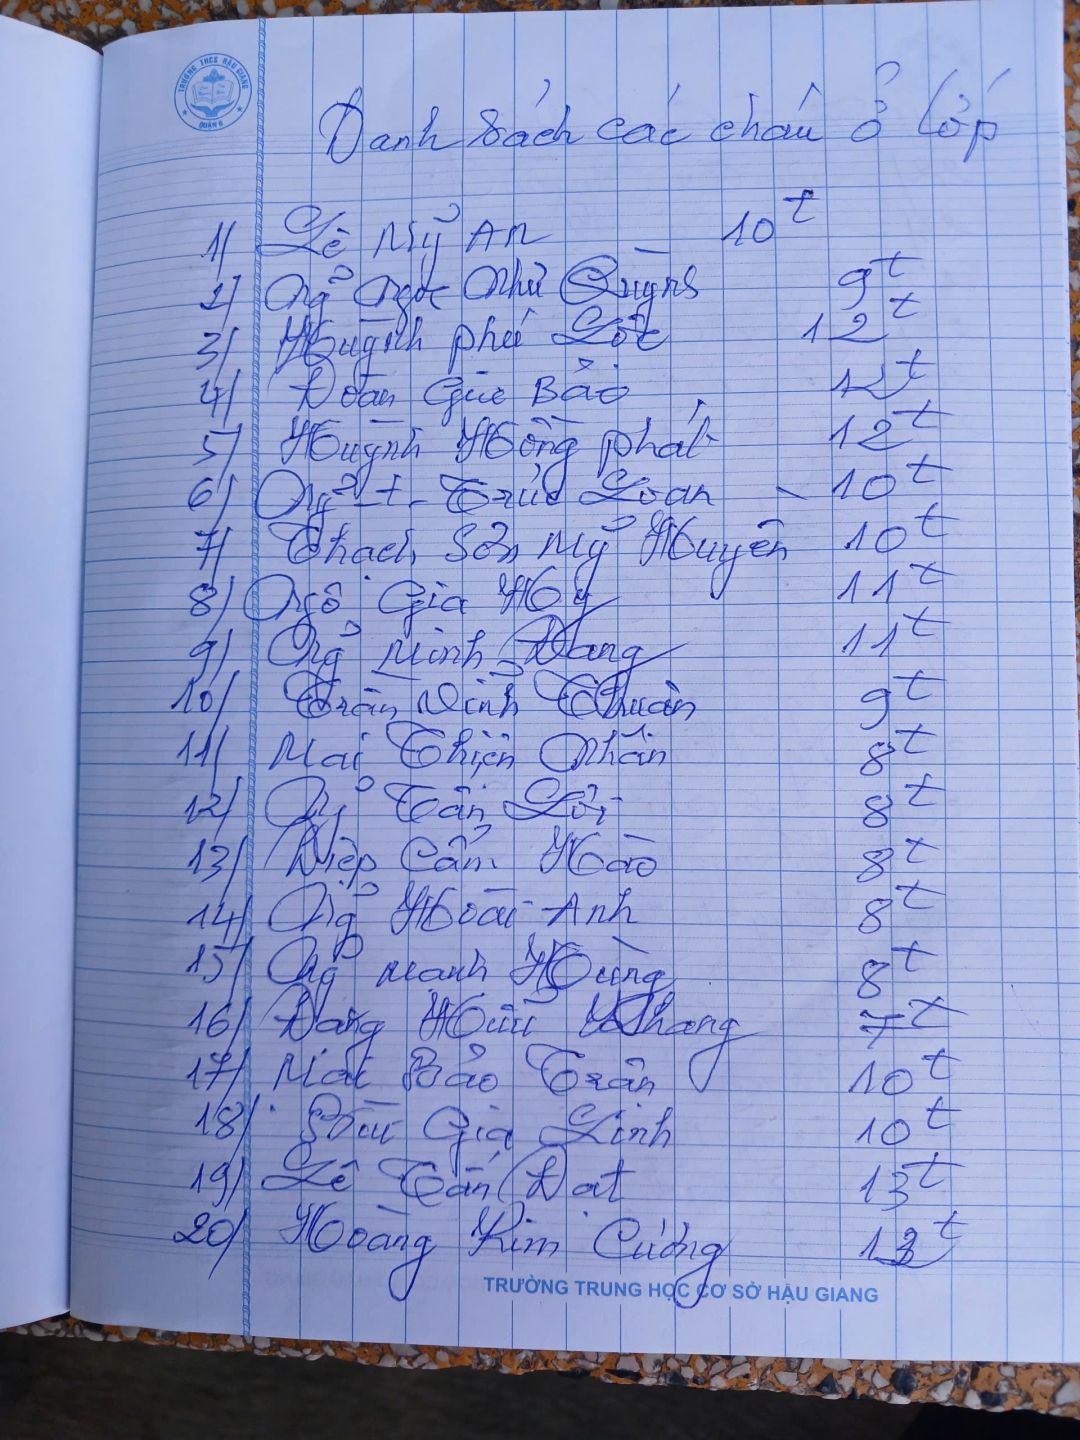 TRƯỜNG THCS HẬU GIANG
QUẬN 6
Danh sách các cháu ở lớp
1/ Lê Mỹ An 10t
2/ Ng̉ Ngọc Như Quỳnh 9t
3/ Huỳnh phú Lộc 12t
4/ Đoàn Gia Bảo 12t
5/ Huỳnh Hồng phát 12t
6/ Ng̉ T. Trúc Loan - 10t
7/ Thạch Sơn Mỹ Huyền 10t
8/ Ngô Gia Hy 11t
9/ Ng̉ Minh Đăng 11t
10/ Trần Vĩnh Thuận 9t
11/ Mai Thiện Nhân 8t
12/ Ng̉ Tấn Lợi 8t
13/ Diệp Cẩm Hào 8t
14/ Ng̉ Hoài Anh 8t
15/ Ng̉ Mạnh Hùng 8t
16/ Đặng Hữu Khang 7t
17/ Mai Bảo Trân 10t
18/ Gia Linh 10t
19/ Lê Tấn Đạt 13t
20/ Hoàng Kim Cương t
TRƯỜNG TRUNG HỌC CƠ SỞ HẬU GIANG